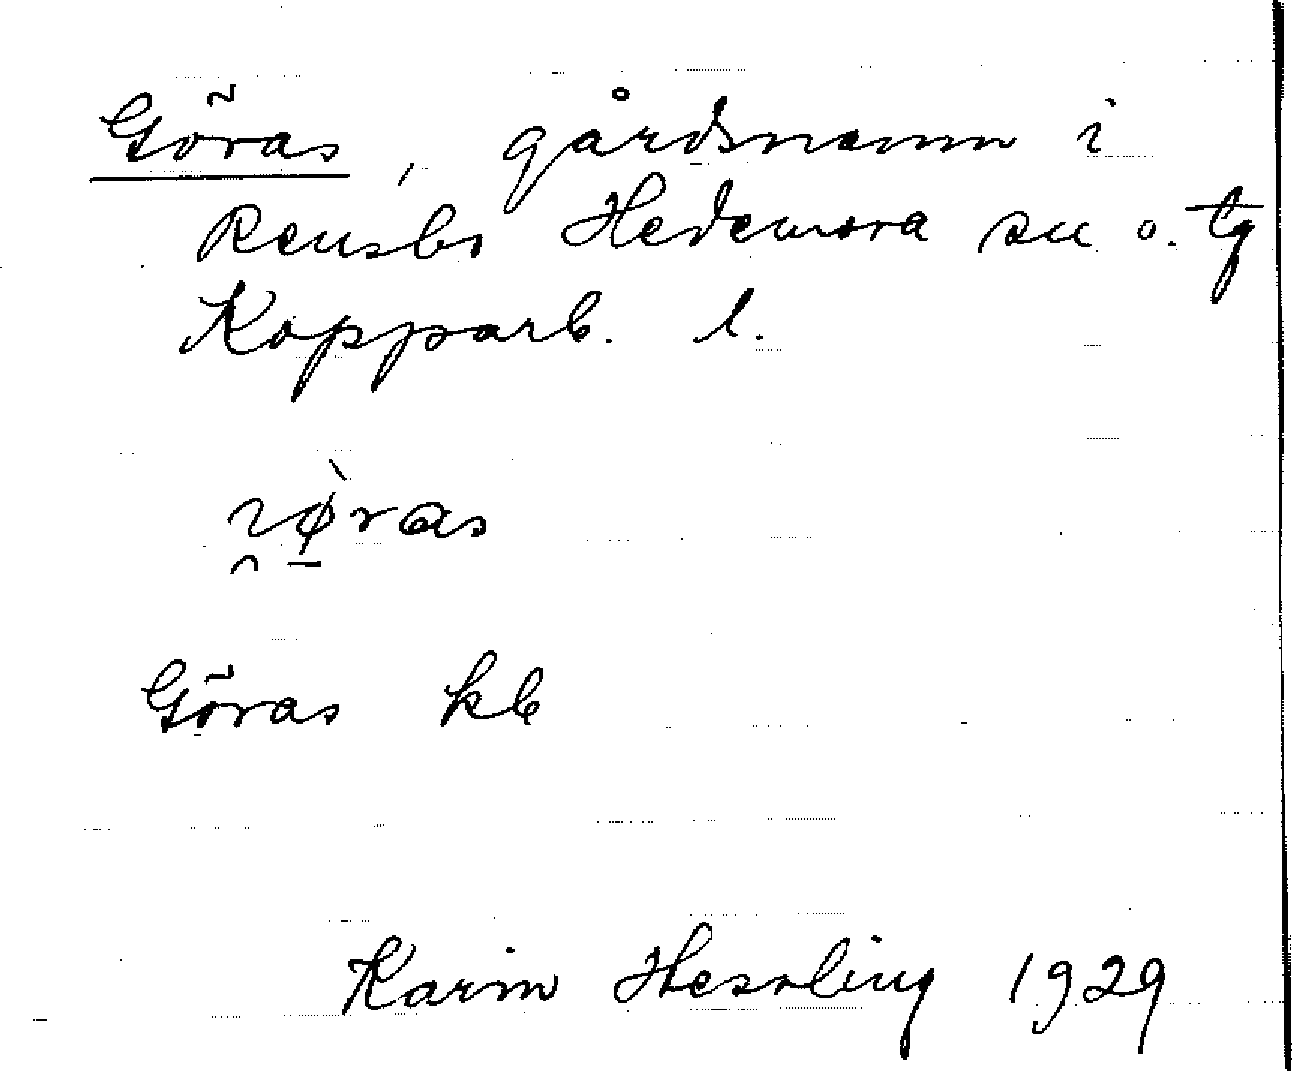 Göras, gårdsnamn i
Rensbo Hedemora sn o. tg
Kopparb. l.
Göras kb
Karin Hessling 1929